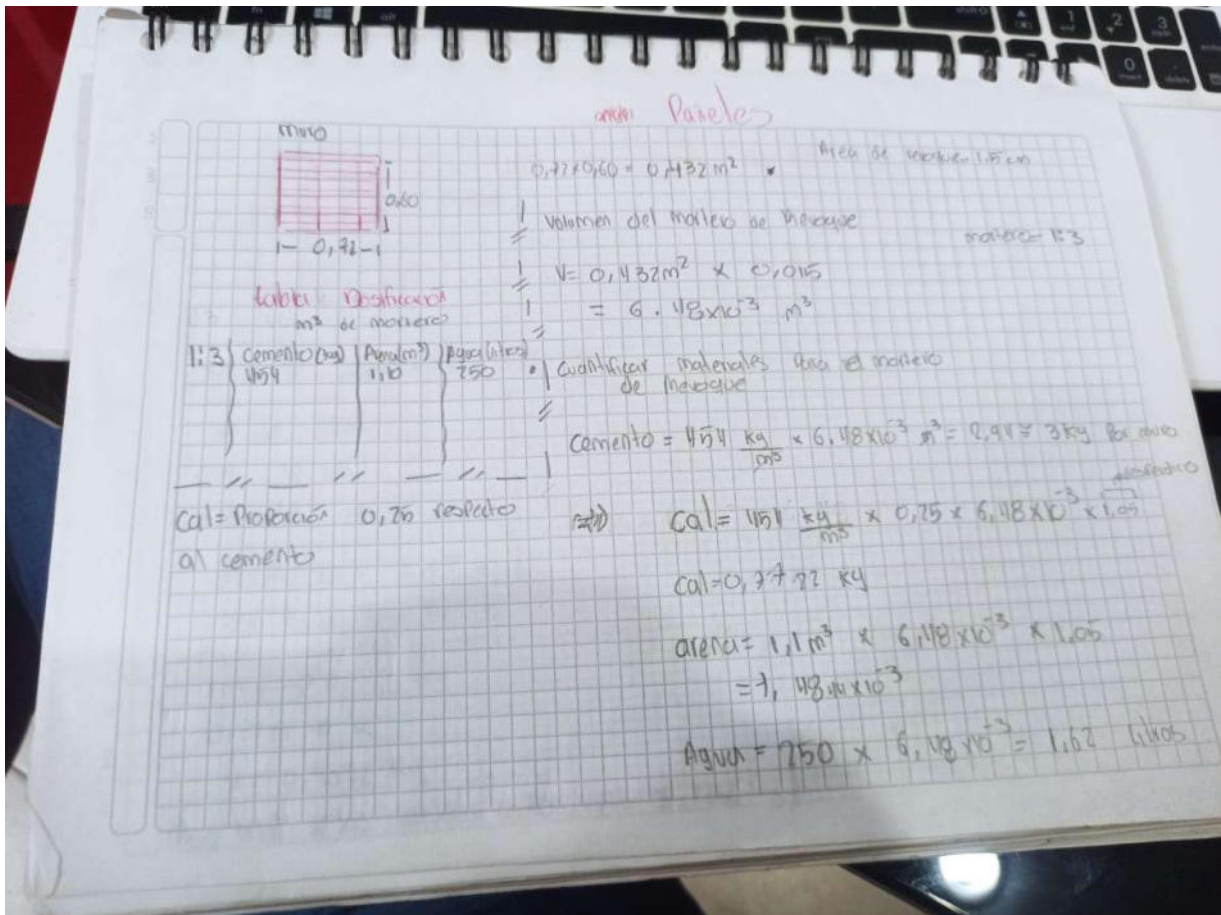 Paneles
muro
0,72x0,60 = 0,432 m²
Area de revoque = 1.5 cm
0,60
1- 0,72 -1
Volumen del mortero de revoque
mortero = 1:3
V= 0,432m² x 0,015
= 6.48x10⁻³ m³
tabla Dosificacion
m³ de mortero
1:3 cemento (kg) Arena(m³) Agua (litros)
454 1,10 250
Cuantificar materiales para el mortero
de revoque
Cemento = 454 kg/m³ x 6.48x10⁻³ m³ = 2,94 ≈ 3kg Por muro
desperdicio
Cal= Proporción 0,25 respecto
al cemento
Cal= 454 kg/m³ x 0,25 x 6,48x10⁻³ x 1,05
Cal=0,7722 kg
arena= 1,1m³ x 6,48x10⁻³ x 1.05
= 7,484x10⁻³
Agua = 250 x 6,48x10⁻³ = 1,62 litros